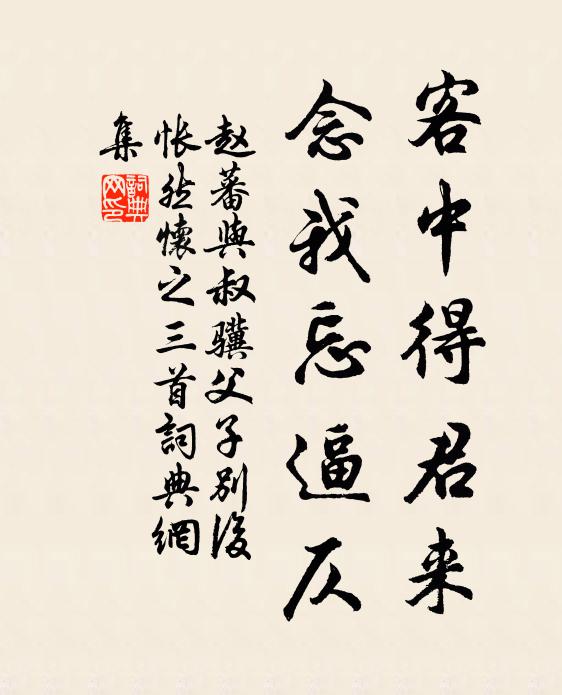 客中得君来
念我忘逼仄
赵蕃與叔骥父子别後
怅然懷之三首詞典網
集
詞典
网印